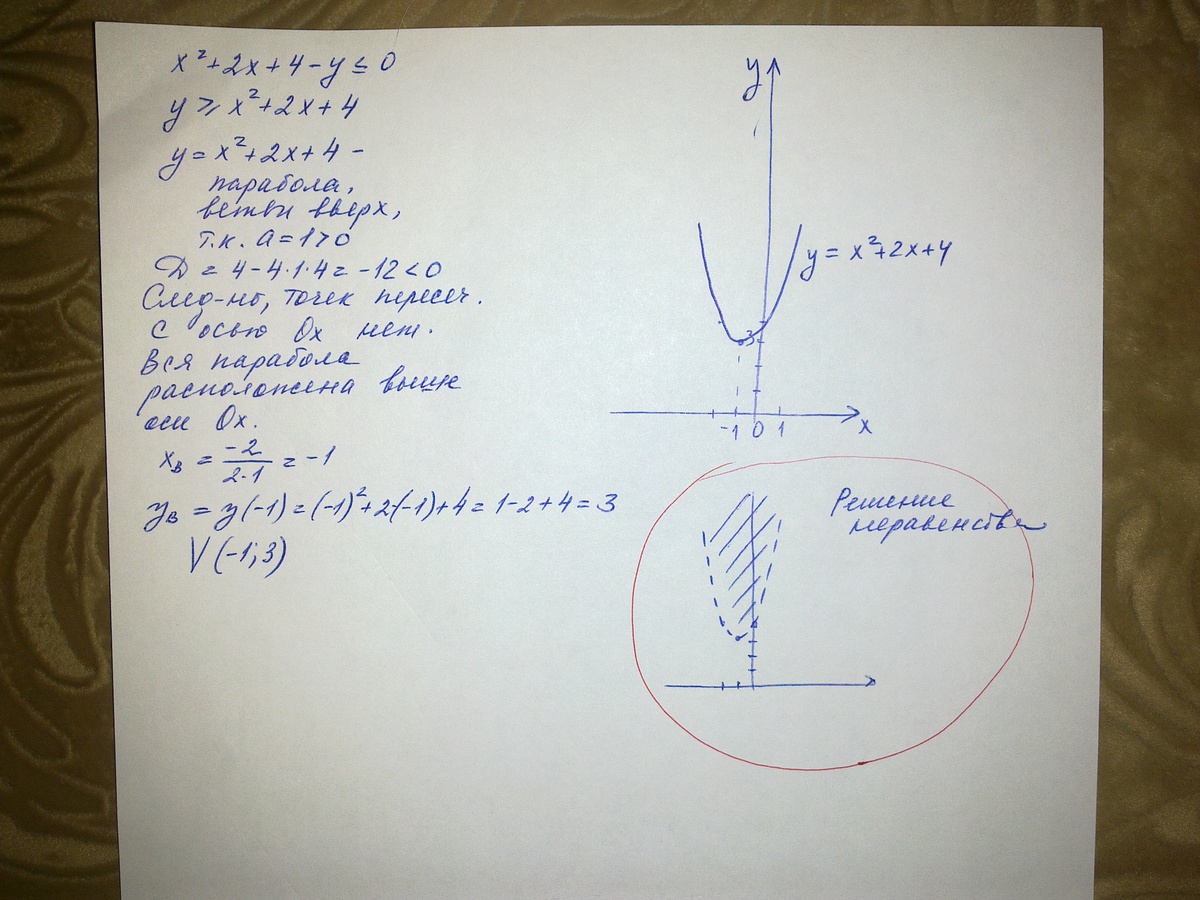 x²+2x+4-y ≤ 0
y ⩾ x²+2x+4
y = x²+2x+4 -
парабола,
ветви вверх,
т.к. a=1>0
D = 4-4·1·4 = -12<0
След-но, точек пересеч.
с осью Ox нет.
Вся парабола
расположена выше
оси Ox.
x_в = -2/2·1 = -1
y_в = y(-1) = (-1)²+2·(-1)+4 = 1-2+4 = 3
V(-1;3)
y
y = x²+2x+4
3
-1 0 1 x
Решение
неравенства